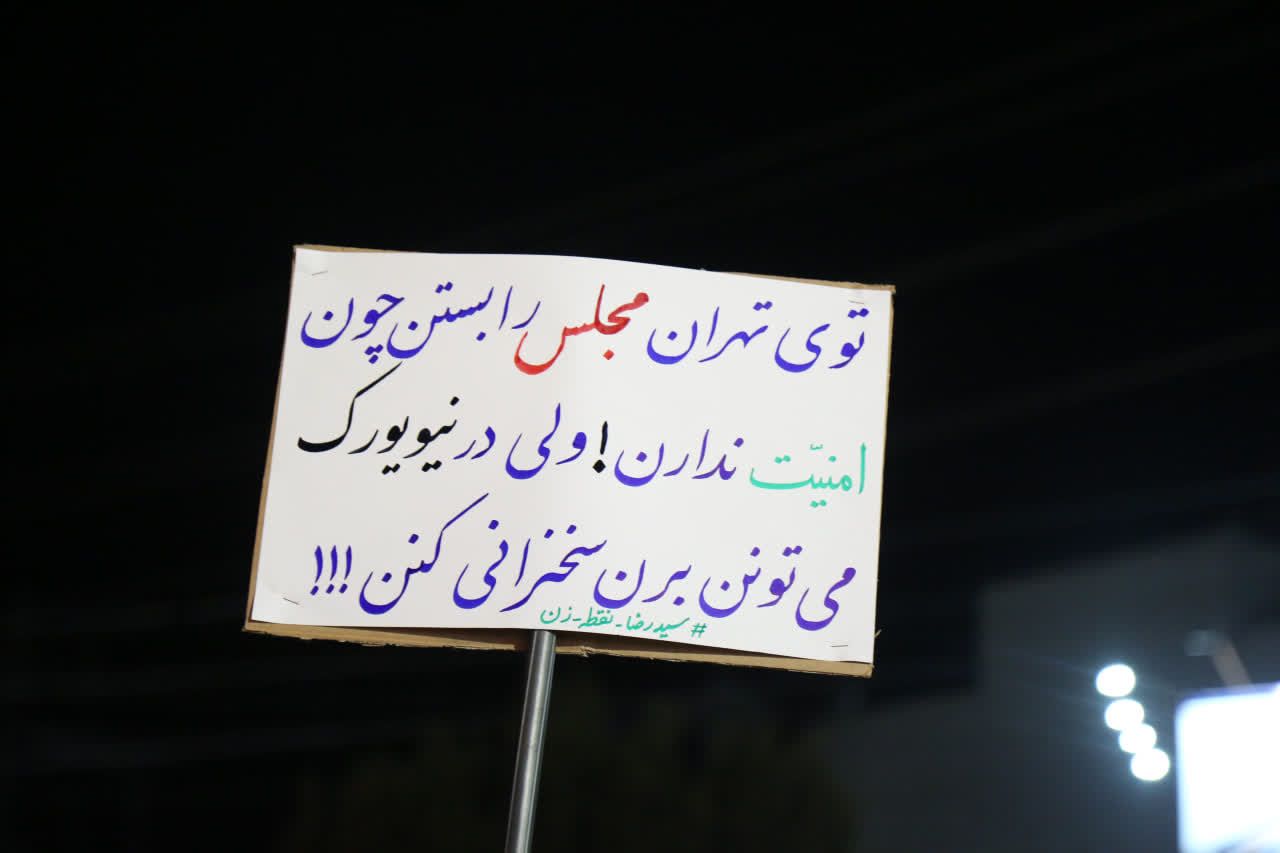 توی تهران مجلس را بستن چون
امنیّت ندارن! ولی در نیویورک
می تونن برن سخنرانی کنن !!!
#سیدرضا-نقطه-زن